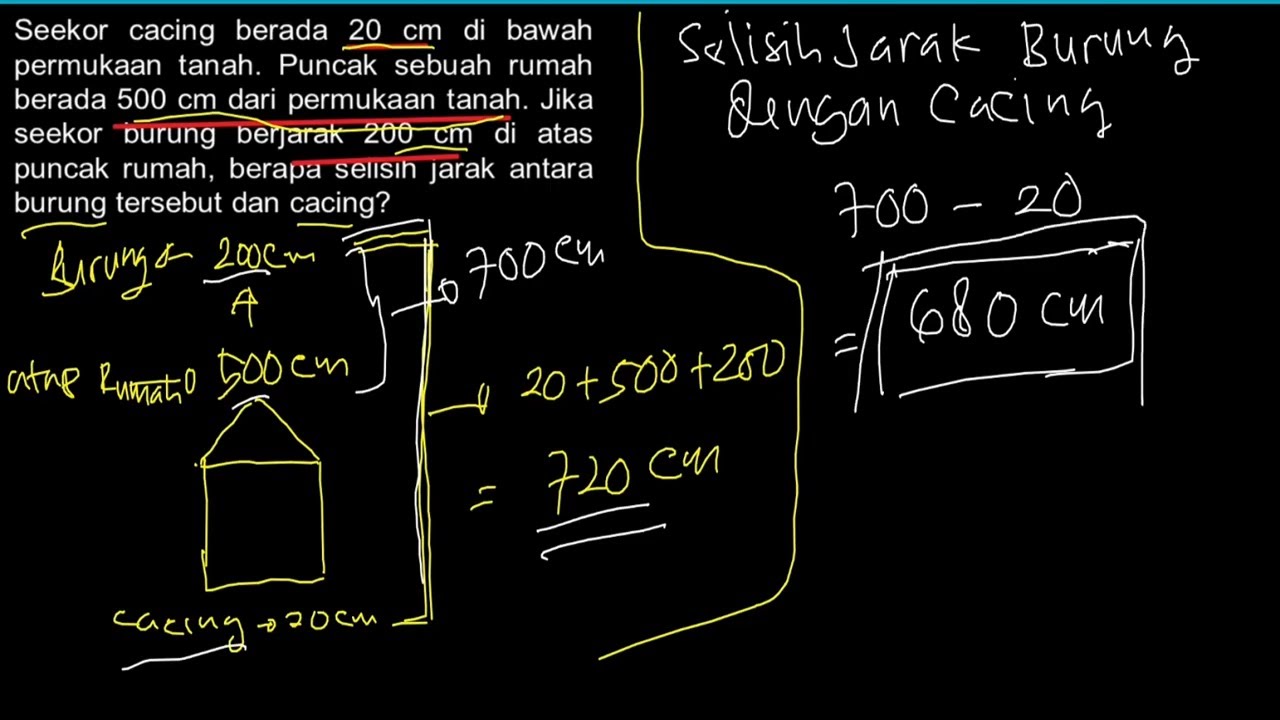 Seekor cacing berada 20 cm di bawah
permukaan tanah. Puncak sebuah rumah
berada 500 cm dari permukaan tanah. Jika
seekor burung berjarak 200 cm di atas
puncak rumah, berapa selisih jarak antara
burung tersebut dan cacing?
Burung 200cm
700 cm
atas Rumah 500 cm
20+500+200
= 720 cm
cacing → 20 cm
Selisih Jarak Burung
dengan Cacing
700 - 20
= 680 cm